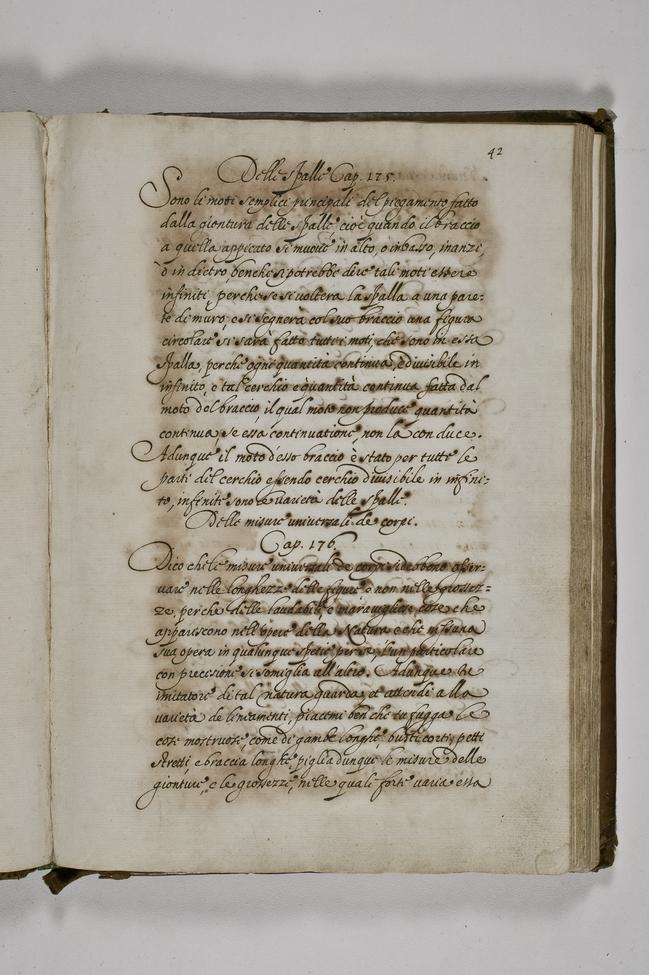 42
Delle spalle Cap. 175.
Sono li moti semplici principali del piegamento fatto
dalla giontura delle spalle, cioè quando il braccio
a quella appicato si muove in alto, o inbasso, inanzi,
ò in dietro, benche si potrebbe dire tali moti essere
infiniti, perche se si volterà la spalla a una pare-
te di muro, e si segnerà col suo braccio una figura
circolare si sarà fatto tutti i moti, che sono in essa
spalla, perche ogni quantità continua, è divisibile in
infinito, e tal cerchio e quantità continua fatta dal
moto del braccio, il qual moto non produce quantità
continua, se essa continuatione, non la conduce.
Adunque il moto d'esso braccio è stato per tutte le
parti del cerchio essendo cerchio divisibile in infini-
to, infinite sono le varietà delle spalle.
Delle misure universali de corpi.
Cap. 176.
Dico che le misure universali de corpi si debbono osser-
vare nelle longhezze delle figure e non nelle grossez-
ze, perche delle laudabili e maravigliose cose che
appariscono nell'opere della Natura e che nissuna
sua opera in qualunque spetie per se, l'un particolare
con precisione si somiglia all'altro. Adunque tu
imitatore di tal natura guarda, et attendi alla
varietà de lineamenti, piacemi ben che tu fugga le
cose mostruose, come di gambe longhe, busti corti, petti
stretti, e braccia longhe, piglia dunque le misure delle
gionture, e le grossezze, nelle quali forte varia essa